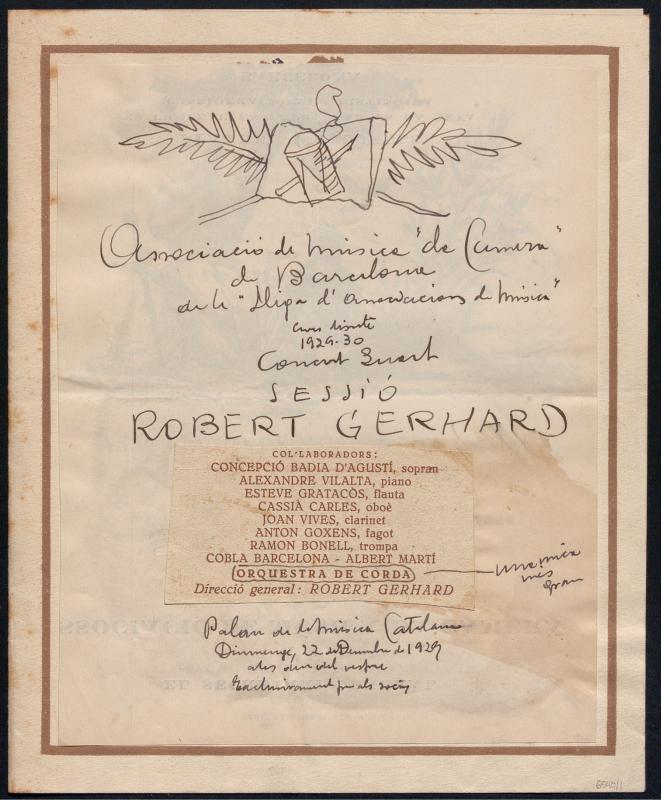 Associació de Música "da Camera"
de Barcelona
de la "Lliga d'Associacions de Música"
Curs
1929-30
Concert Quart
SESSIÓ
ROBERT GERHARD
COL·LABORADORS:
CONCEPCIÓ BADIA D'AGUSTÍ, sopran
ALEXANDRE VILALTA, piano
ESTEVE GRATACÒS, flauta
CASSIÀ CARLES, oboè
JOAN VIVES, clarinet
ANTON GOXENS, fagot
RAMON BONELL, trompa
COBLA BARCELONA - ALBERT MARTÍ
ORQUESTRA DE CORDA
una mica
més
gran
Direcció general: ROBERT GERHARD
Palau de la Música Catalana
Diumenge, 22 de Desembre de 1929
a les deu del vespre
Exclusivament per als socis
6540/1